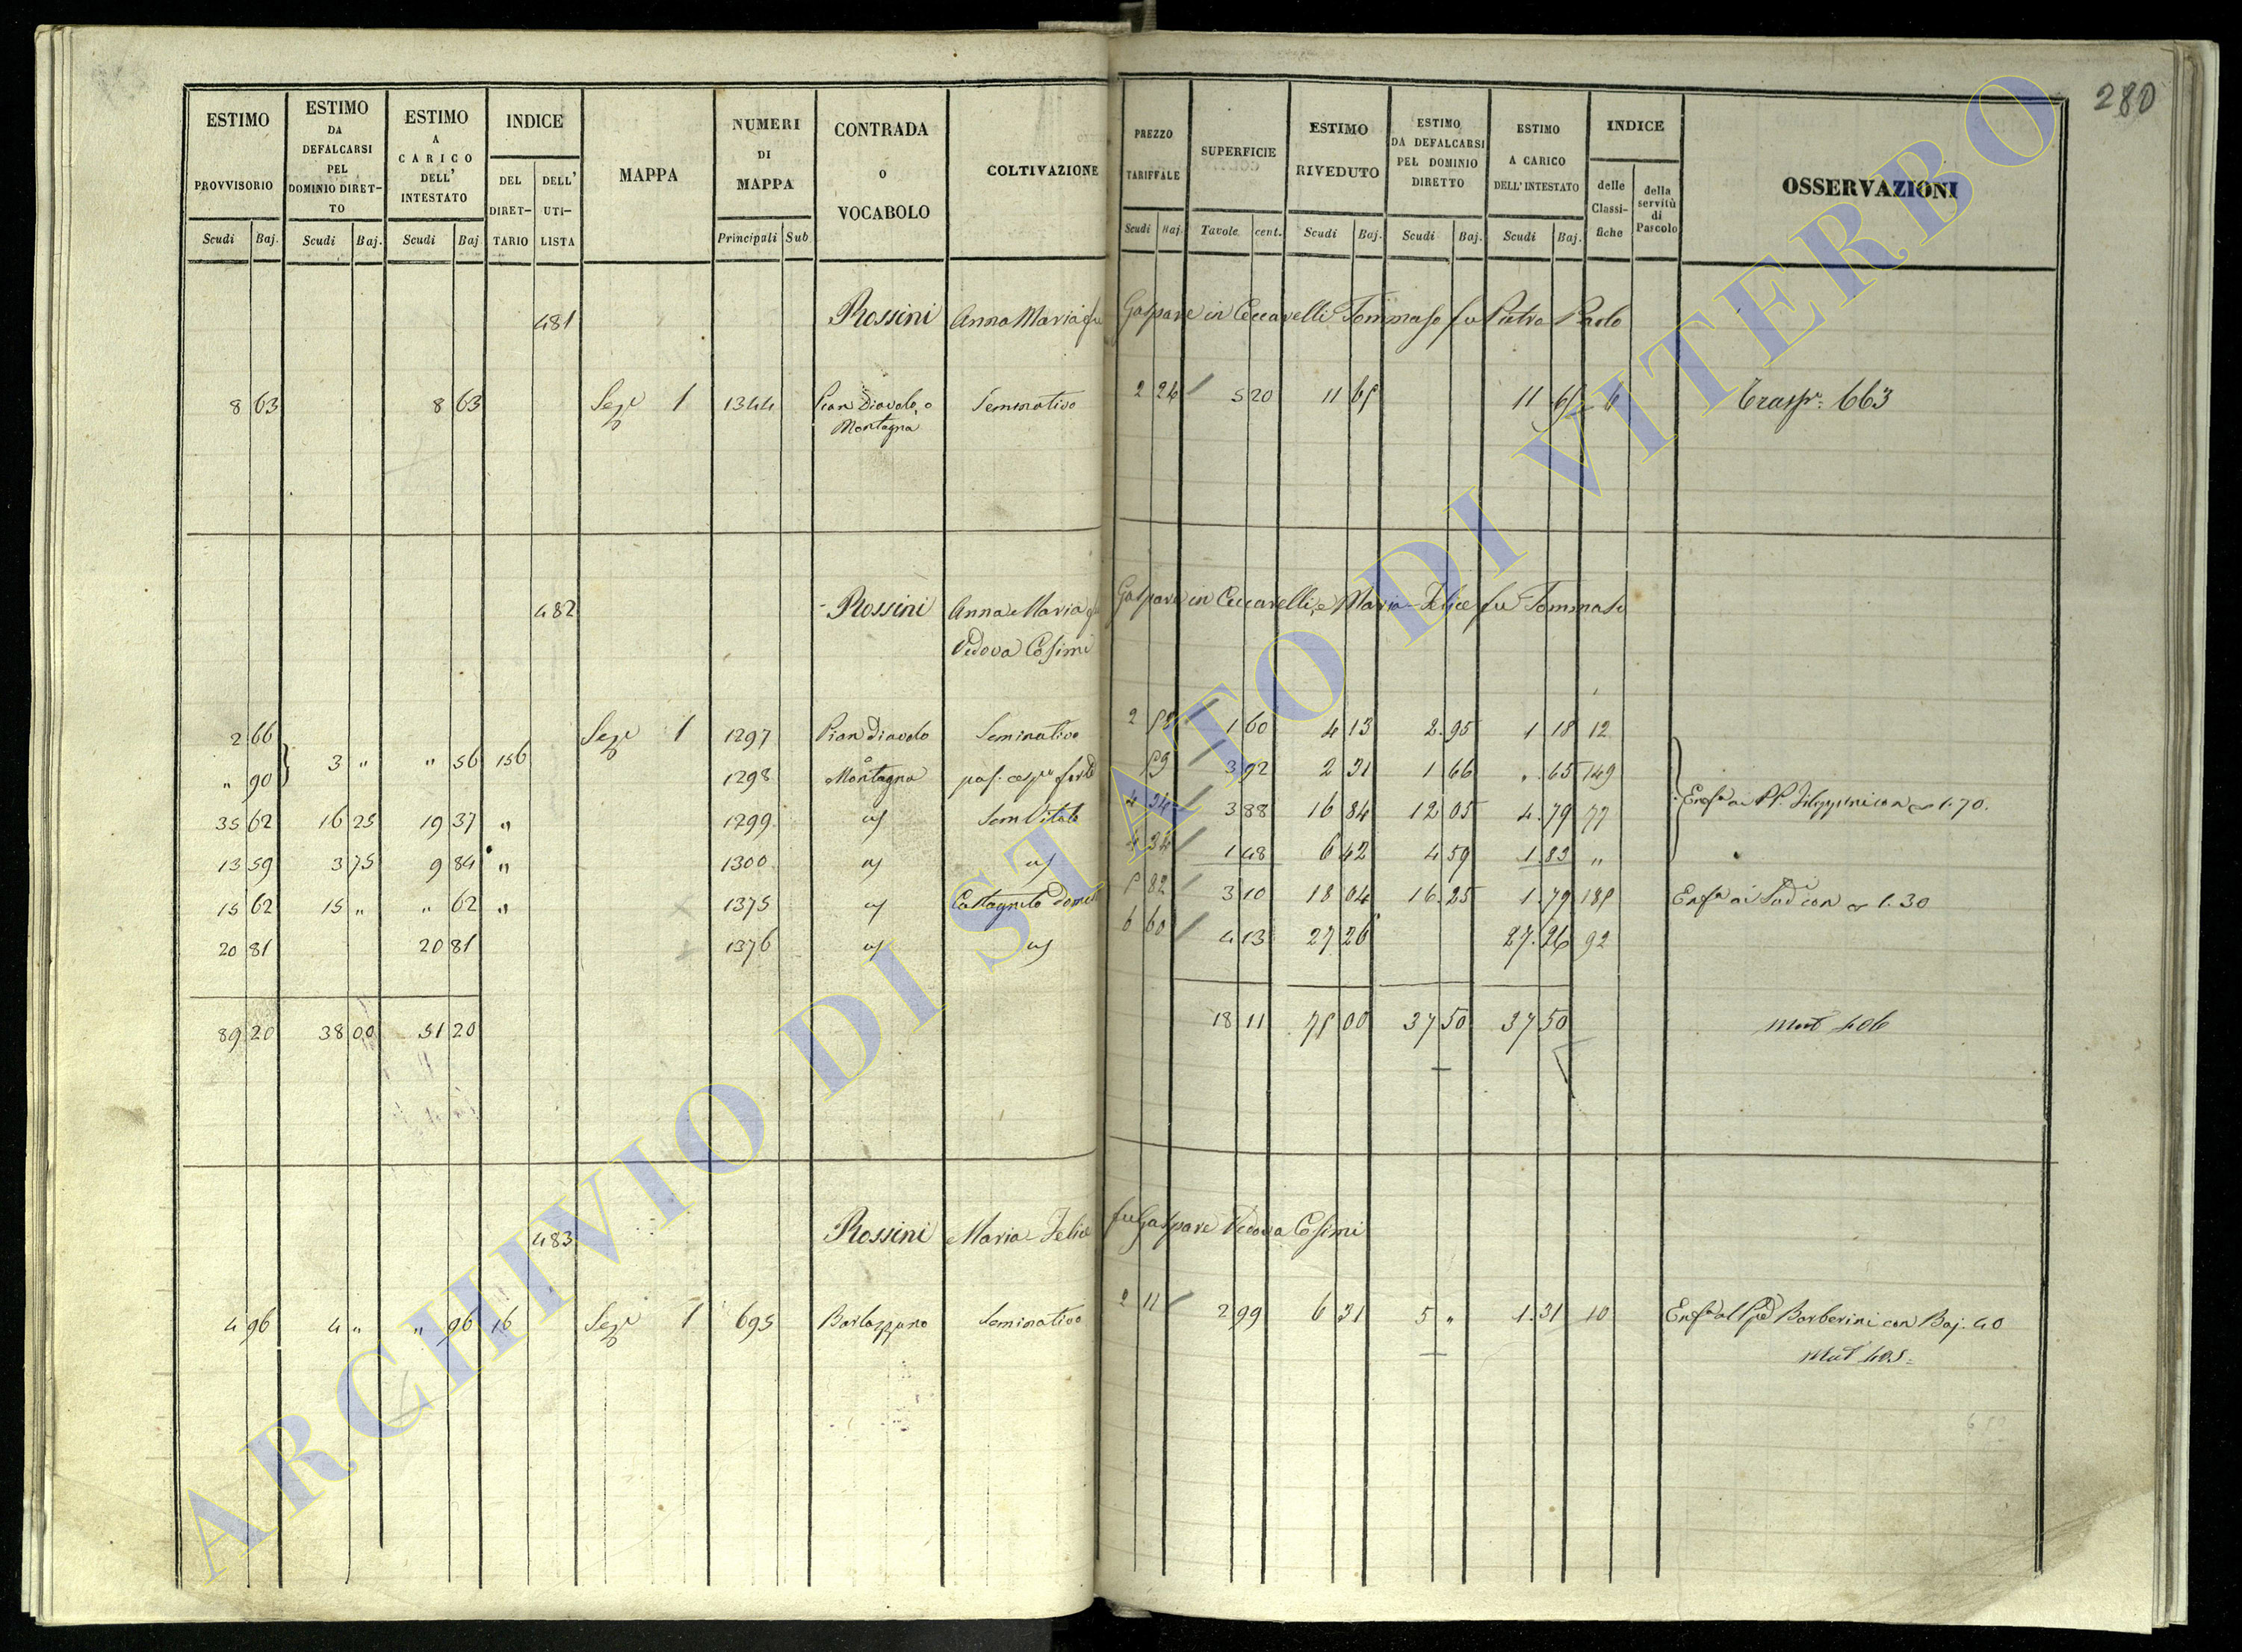 280
ESTIMO PROVVISORIO Scudi Baj.
ESTIMO DA DEFALCARSI PEL DOMINIO DIRET-TO Scudi Baj.
ESTIMO A CARICO DELL' INTESTATO Scudi Baj
INDICE DEL DIRET-TARIO DELL' UTI-LISTA
MAPPA
NUMERI DI MAPPA Principali Sub
CONTRADA o VOCABOLO
COLTIVAZIONE
PREZZO TARIFFALE Scudi Baj.
SUPERFICIE Tavole cent.
ESTIMO RIVEDUTO Scudi Baj.
ESTIMO DA DEFALCARSI PEL DOMINIO DIRETTO Scudi Baj.
ESTIMO A CARICO DELL' INTESTATO Scudi Baj.
INDICE delle Classi-fiche della servitù di Pascolo
OSSERVAZIONI
481 Rossini Anna Maria fu Gaspare in Ceccarelli Tommaso fu Pietro Paolo
8 63 8 63 Sez.e 1 1344 Pian Diavolo, o Seminativo 2 24 5 20 11 65 11 65 6 Trasp. 663
Montagna
482 Rossini Anna Maria fu Gaspare in Ceccarelli, e Maria Felice fu Tommaso
Vedova Cosimi
2 66 Sez.e 1 1297 Pian Diavolo Seminativo 2 58 1 60 4 13 2 95 1 18 12
3 " " 56 156
" 90 1298 o Montagna pas. cesp. forte 59 3 92 2 31 1 66 " 65 149
Enf.a ai PP. Filippini con 1.70.
35 62 16 25 19 37 " 1299 " Sem Vitato 4 34 3 88 16 84 12 05 4 79 77
13 59 3 75 9 84 " 1300 " " 4 34 1 48 6 42 4 59 1 83 "
15 62 15 " " 62 " 1375 " Castagneto dome 5 82 3 10 18 04 16 25 1 79 185 Enf.a ai con 1.30
20 81 20 81 1376 " " 6 60 4 13 27 26 27 26 92
89 20 38 00 51 20 18 11 75 00 37 50 37 50 Mut 406
483 Rossini Maria Felice fu Gaspare Vedova Cosimi
4 96 4 " " 96 16 Sez.e 1 695 Barlozzano Seminativo 2 11 2 99 6 31 5 " 1 31 10 Enf.a al Barberini con Baj. 40
Mut 405
ARCHIVIO DI STATO DI VITERBO